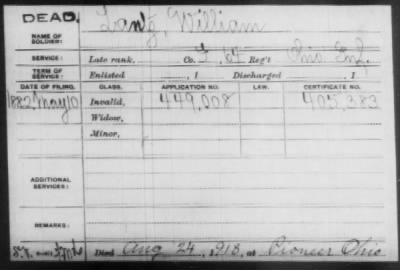 DEAD.
NAME OF SOLDIER:
Lantz, William
SERVICE:
Late rank, Co. F, 64 Reg't Ohio Inf.
TERM OF SERVICE:
Enlisted , 1 Discharged , 1
DATE OF FILING. CLASS. APPLICATION NO. LAW. CERTIFICATE NO.
1882 May 10 Invalid, 449,008 405,383
Widow,
Minor,
ADDITIONAL SERVICES:
REMARKS:
Died Aug 24, 1918, at Pioneer Ohio